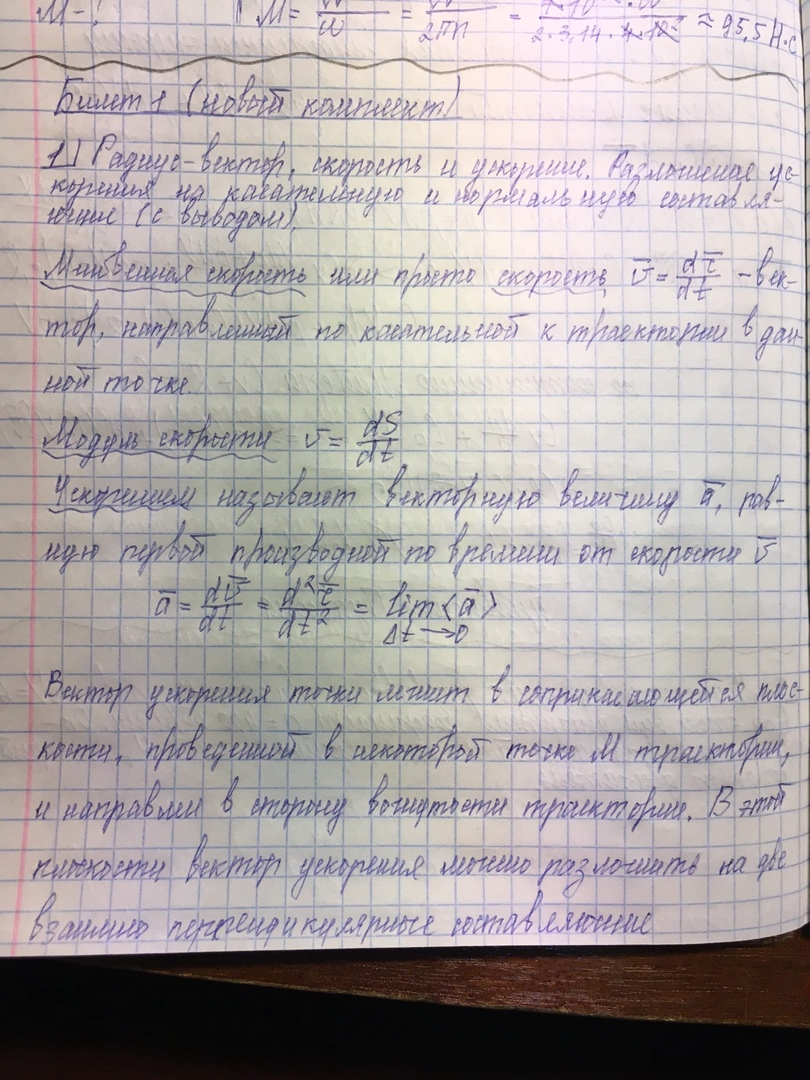 М-? М = = = ≈ 95,5 Н·с
ω 2πn 2·3,14·
Билет 1 (новый комплект)
1] Радиус-вектор, скорость и ускорение. Разложение ус-
корения на касательную и нормальную составля-
ющие (с выводом).
Мгновенная скорость или просто скорость v̄ = dr̄/dt - век-
тор, направленный по касательной к траектории в дан-
ной точке.
Модуль скорости v = dS/dt
Ускорением называют векторную величину ā, рав-
ную первой производной по времени от скорости v̄
ā = dv̄/dt = d²r̄/dt² = lim ⟨ā⟩
Δt→0
Вектор ускорения точки лежит в соприкасающейся плос-
кости, проведенной в некоторой точке М траектории,
и направлен в сторону вогнутости траектории. В этой
плоскости вектор ускорения можно разложить на две
взаимно перпендикулярные составляющие